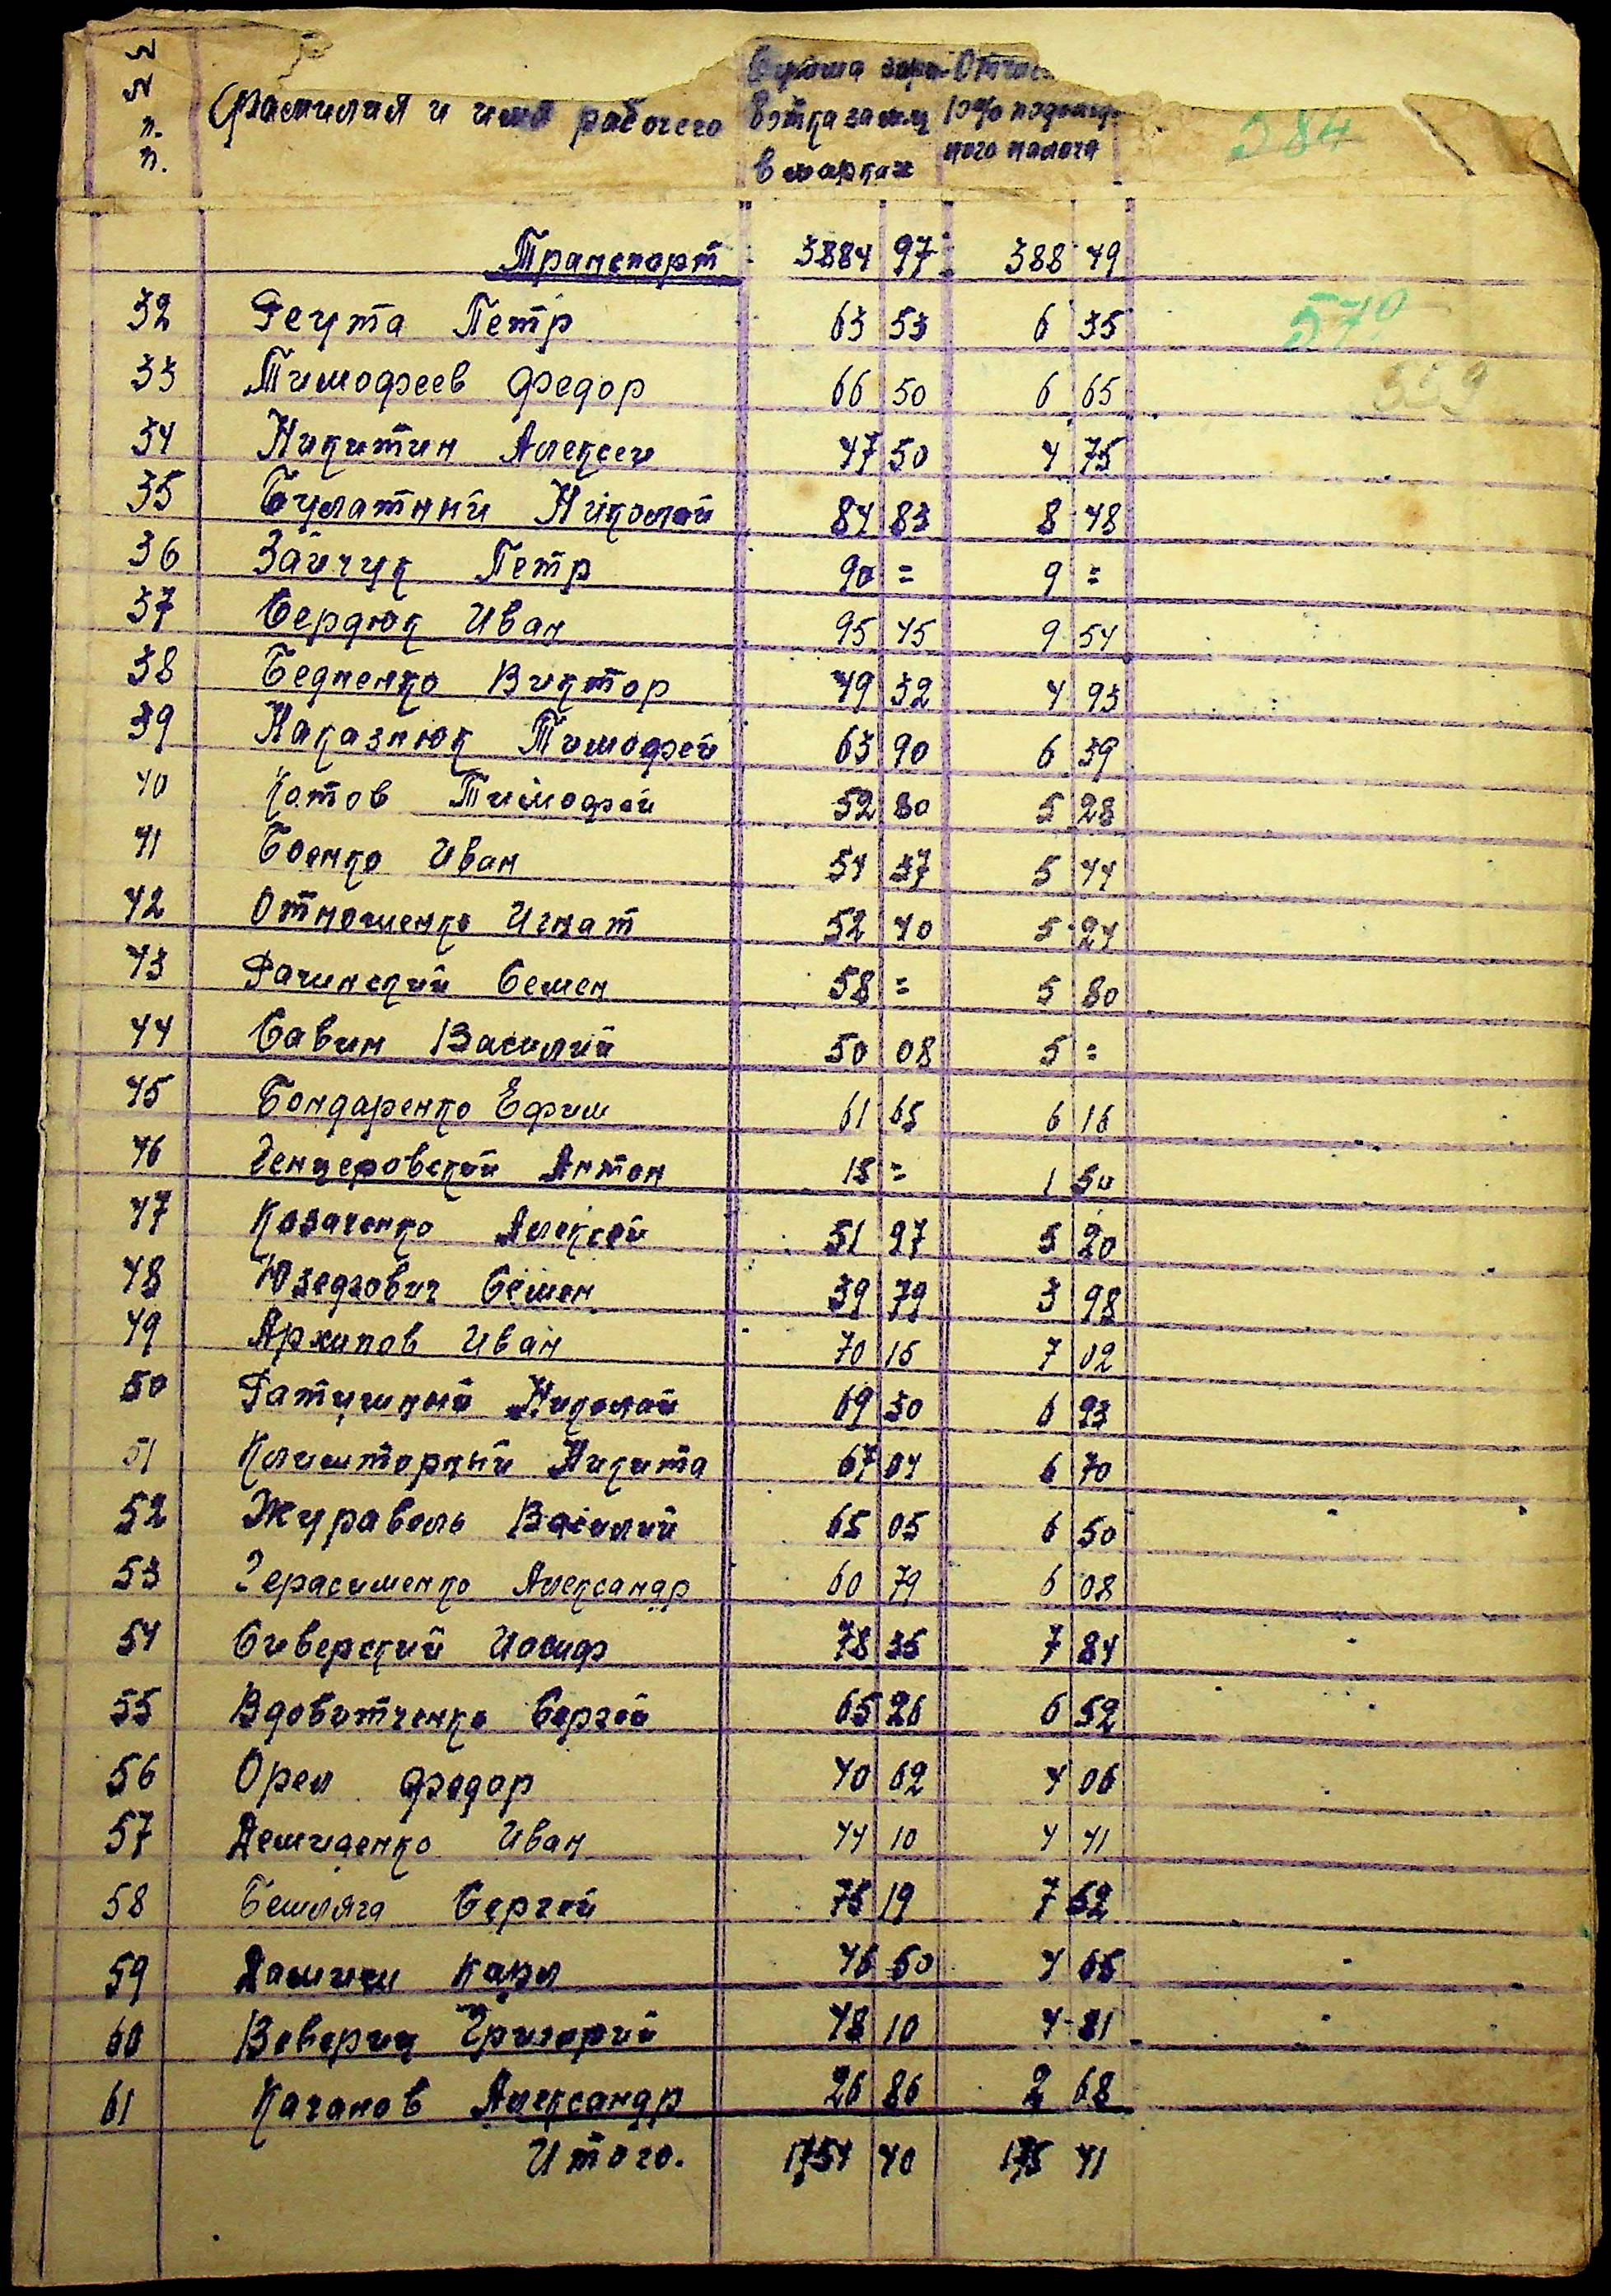 № № п. п. Фамилия и имя рабочего Сумма зара- ботка за м-ц в марках Отчис 10% подоход- ного налога 384
Транспорт 3884 97 388 49
32 Реута Петр 63 53 6 35 570
33 Тимофеев Федор 66 50 6 65 559
34 Никитин Алексеи 47 50 4 75
35 Булатный Николай 84 83 8 48
36 Зайчук Петр 90 = 9 =
37 Сердюк Иван 95 45 9 54
38 Бедненко Виктор 49 32 4 93
39 Наказнюк Тимофей 63 90 6 39
40 Котов Тимофей 52 80 5 28
41 Боенко Иван 54 37 5 44
42 Отношенко Игнат 52 40 5 24
43 Рачинский Семен 58 = 5 80
44 Савин Василий 50 08 5 =
45 Бондаренко Ефим 61 65 6 16
46 Генцеровский Антон 15 = 1 50
47 Козаченко Алексей 51 97 5 20
48 Юзедзович Семен 39 79 3 98
49 Архипов Иван 70 15 7 02
50 Ратушный Николай 69 30 6 93
51 Климторный Никита 67 04 6 70
52 Журавель Василий 65 05 6 50
53 Герасименко Александр 60 79 6 08
54 Сиверский Иосиф 78 35 7 84
55 Вдовитченко Сергей 65 26 6 52
56 Орел Федор 40 62 4 06
57 Демиденко Иван 44 10 4 41
58 Бешляга Сергей 75 19 7 52
59 Карл 46 50 4 65
60 Вевериц Григорий 48 10 4 81
61 Качанов Александр 26 86 2 68
Итого. 1754 40 175 41